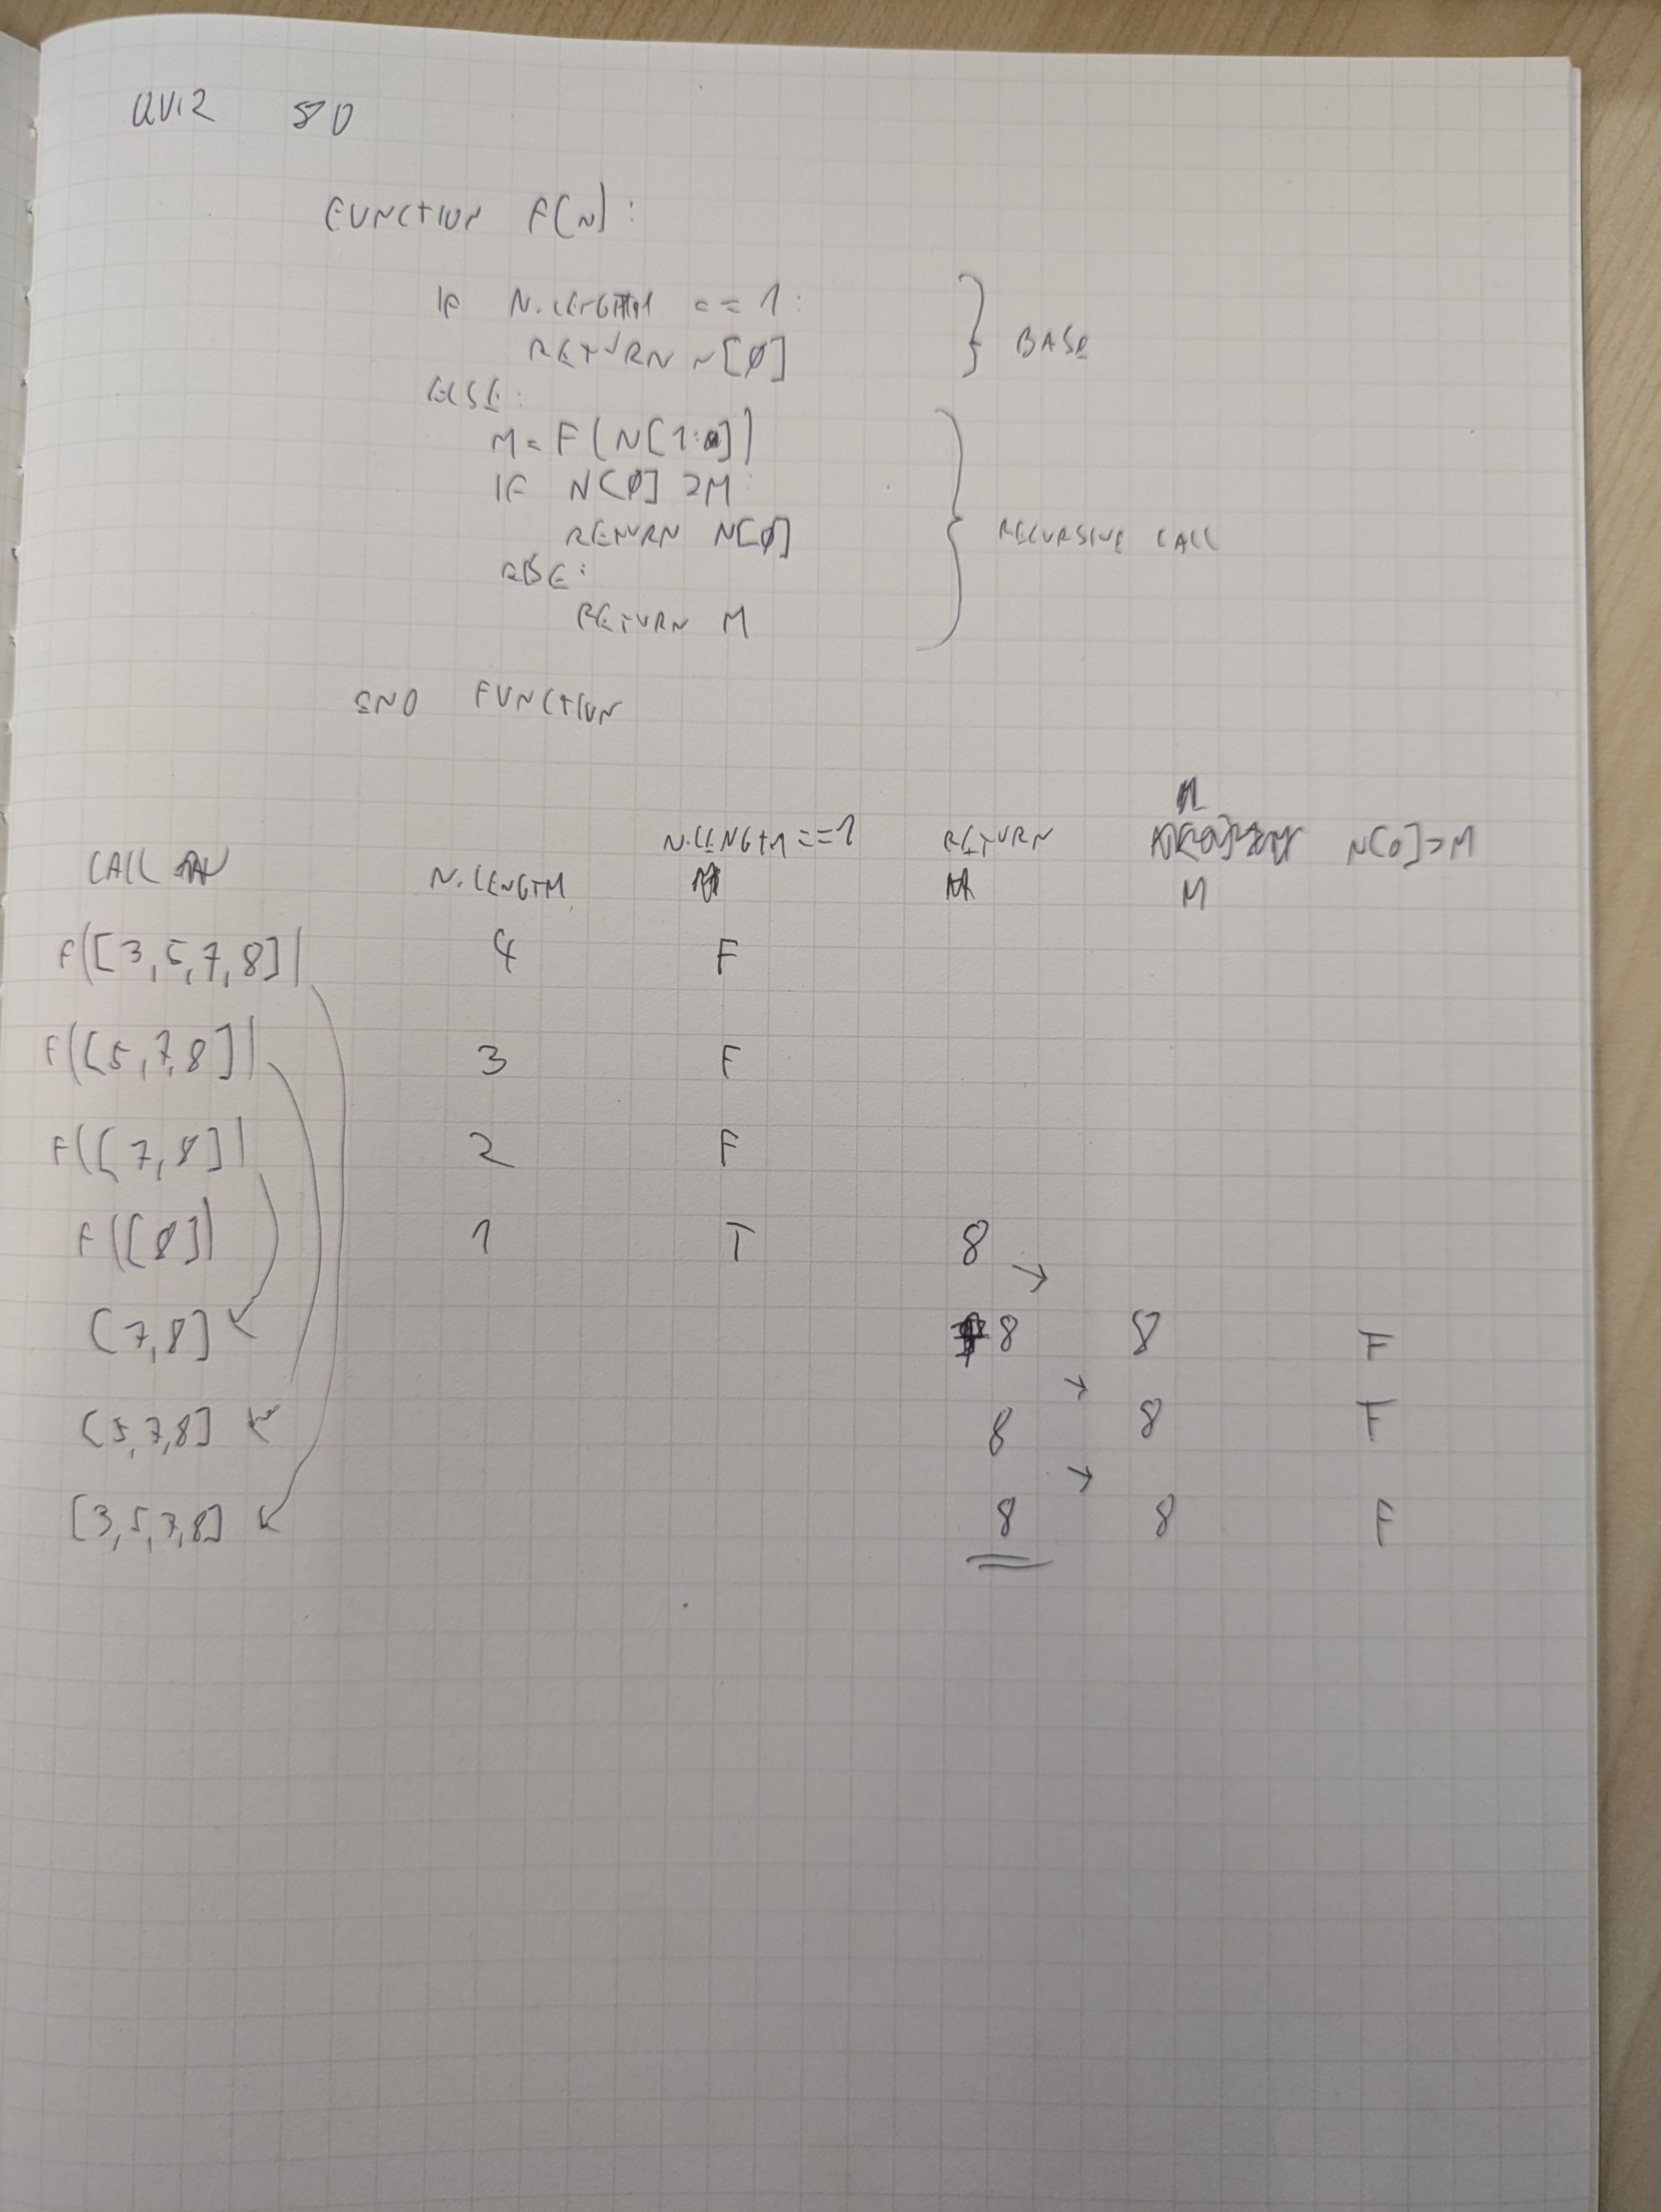 QUIZ 80
FUNCTION F(N):
IF N.LENGTH == 1:
RETURN N[0]
} BASE
ELSE:
M = F(N[1:])
IF N[0] > M:
RETURN N[0]
ELSE:
RETURN M
} RECURSIVE CALL
END FUNCTION
CALL N.LENGTH N.LENGTH==1 RETURN M N[0]>M
F([3,5,7,8]) 4 F
F([5,7,8]) 3 F
F([7,8]) 2 F
F([8]) 1 T 8 →
[7,8] 8 8 F
→
[5,7,8] 8 8 F
→
[3,5,7,8] 8 8 F